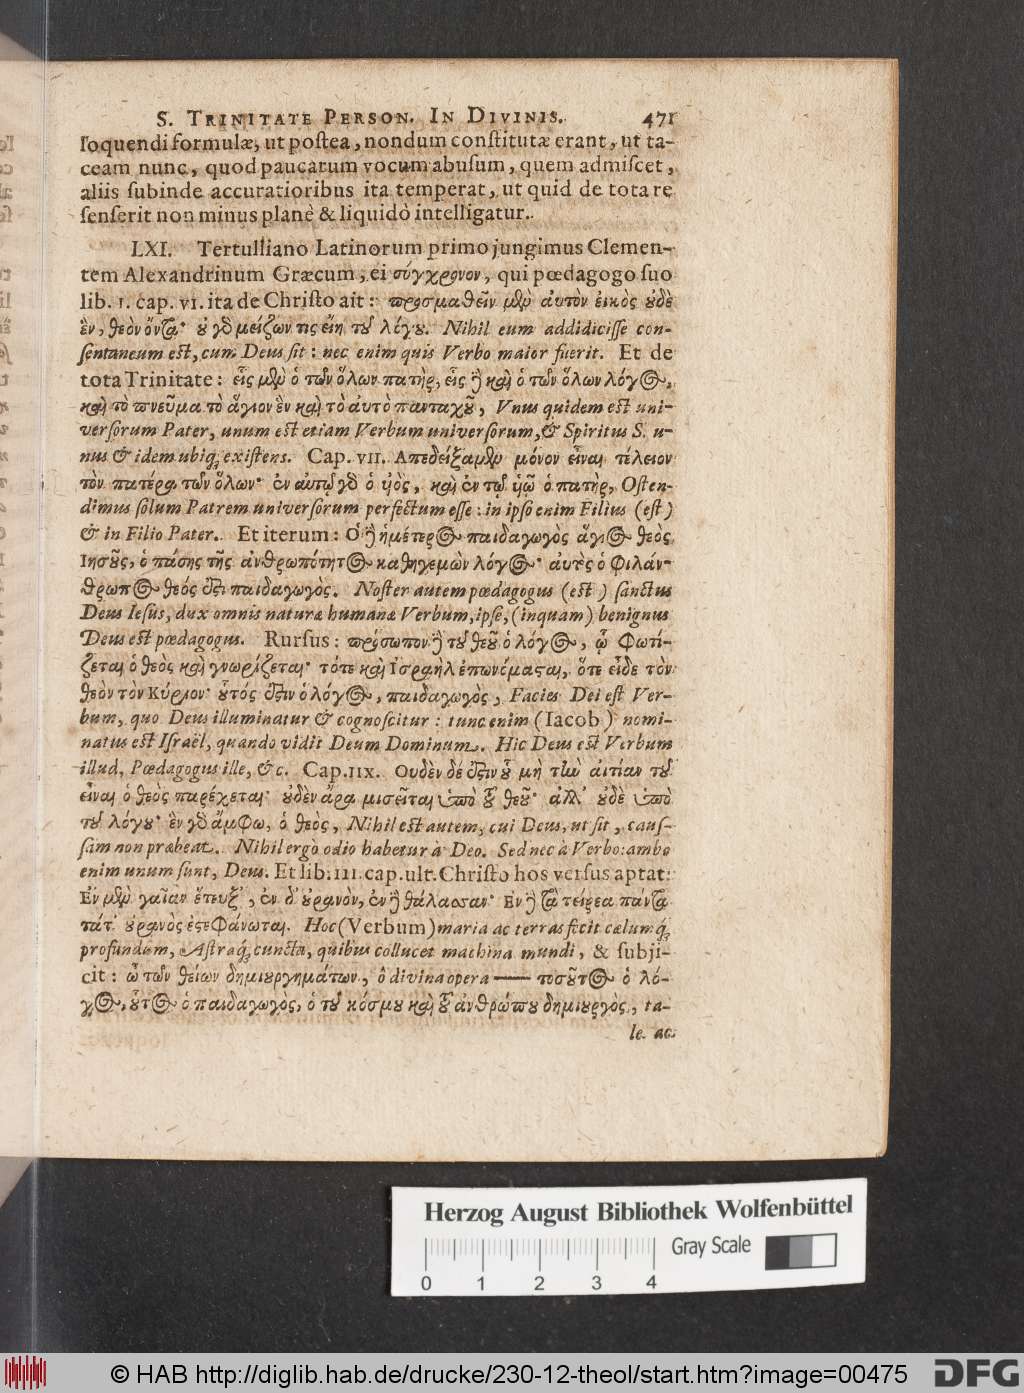 S. TRINITATE PERSON. IN DIVINIS. 471
loquendi formulæ, ut postea, nondum constitutæ erant, ut ta-
ceam nunc, quod paucarum vocum abusum, quem admiscet,
aliis subinde accuratioribus ita temperat, ut quid de tota re
senserit non minus planè & liquidò intelligatur.
LXI. Tertulliano Latinorum primo jungimus Clemen-
tem Alexandrinum Græcum, ei σύγχρονον, qui pœdagogo suo
lib. 1. cap. VI. ita de Christo ait: προσμαθεῖν μὲν αὐτὸν ἐικὸς ὀυδὲ
ἓν, θεὸν ὄντα· ὀυ γὸ μείζων τις εἴη τοῦ λόγου. Nihil eum addidicisse con-
sentaneum est, cum Deus sit: nec enim quis Verbo maior fuerit. Et de
tota Trinitate: εἷς μὲν ὁ τῶν ὅλων πατὴρ, εἷς ἢ καὶ ὁ τῶν ὅλων λόγος,
καὶ τὸ πνεῦμα τὸ ἅγιον ἓν καὶ τὸ ἀυτὸ πανταχοῦ, Vnus quidem est uni-
versorum Pater, unum est etiam Verbum universorum, & Spiritus S. u-
nus & idem ubiq; existens. Cap. VII. Απεδείξαμεν μόνον εἶναι τέλειον
τὸν πατέρα τῶν ὅλων· ἐν αὐτῷ γὸ ὁ ὑιὸς, καὶ ἐν τῷ ὑιῷ ὁ πατὴρ, Osten-
dimus solum Patrem universorum perfectum esse: in ipso enim Filius (est)
& in Filio Pater. Et iterum: Ο δὲ ἡμέτερος παιδαγωγὸς ἅγιος θεὸς
Ιησοῦς, ὁ πάσης τῆς ἀνθρωπότητος καθηγεμὼν λόγος· ἀυτὸς ὁ φιλάν-
θρωπος θεός ἐστι παιδαγωγὸς. Noster autem pœdagogus (est) sanctus
Deus Iesus, dux omnis naturæ humanæ Verbum, ipse, (inquam) benignus
Deus est pœdagogus. Rursus: πρόσωπον δὲ τοῦ θεοῦ ὁ λόγος, ᾧ φωτί-
ζεται ὁ θεὸς καὶ γνωρίζεται· τότε καὶ Ισραὴλ ἐπωνόμασται, ὅτε εἶδε τὸν
θεὸν τὸν Κύριον· οὗτός ἐστιν ὁ λόγος, παιδαγωγὸς, Facies Dei est Ver-
bum, quo Deus illuminatur & cognoscitur: tunc enim (Iacob) nomi-
natus est Israël, quando vidit Deum Dominum. Hic Deus est Verbum
illud, Pœdagogus ille, &c. Cap. IIX. Ουδὲν δέ ἐστιν οὗ μὴ τὴν αἰτίαν τοῦ
εἶναι ὁ θεὸς παρέχεται· οὐδὲν ἄρα μισεῖται ὑπὸ τοῦ θεοῦ· ἀλλ' οὐδὲ ὑπὸ
τοῦ λόγου· ἓν γὸ ἄμφω, ὁ θεὸς, Nihil est autem, cui Deus, ut sit, caus-
sam non præbeat. Nihil ergò odio habetur à Deo. Sed nec à Verbo: ambo
enim unum sunt, Deus. Et lib. III. cap. ult. Christo hos versus aptat:
Εν μὲν γαῖαν ἔτευξ', ἐν δ' οὐρανὸν, ἐν δὲ θάλασσαν· Εν δὲ τὰ τείρεα πάντα
τάτ' οὐρανὸς ἐστεφάνωται. Hoc (Verbum) maria ac terras fecit cælumq;
profundum, Astraq; cuncta, quibus collucet machina mundi, & subji-
cit: ὦ τῶν θείων δημιουργημάτων, ô divina opera — τοσοῦτος ὁ λό-
γος, οὗτος ὁ παιδαγωγὸς, ὁ τοῦ κόσμου καὶ τοῦ ἀνθρώπου δημιουργὸς, ta-
le ac
Herzog August Bibliothek Wolfenbüttel
Gray Scale
0 1 2 3 4
© HAB http://diglib.hab.de/drucke/230-12-theol/start.htm?image=00475
DFG